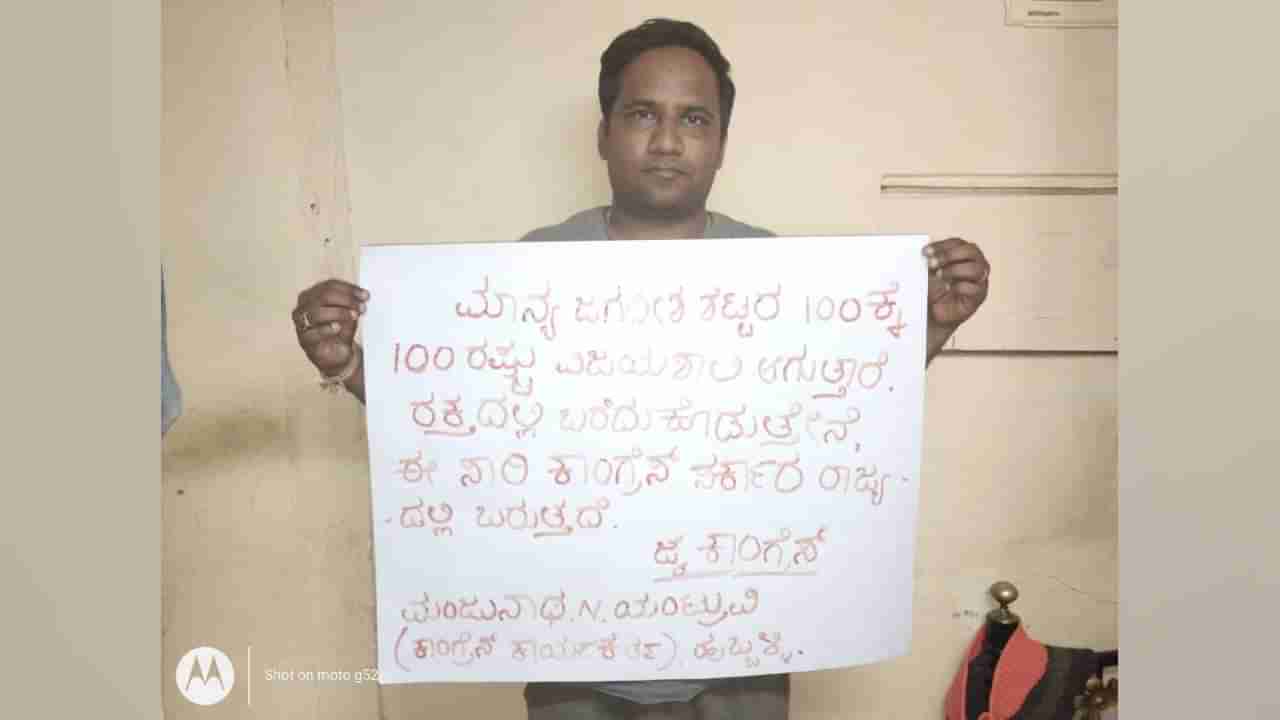 ಮಾನ್ಯ ಜಗದೀಶ ಶೆಟ್ಟರ 100ಕ್ಕೆ
100 ರಷ್ಟು ವಿಜಯಶಾಲಿ ಆಗುತ್ತಾರೆ.
ರಕ್ತದಲ್ಲಿ ಬರೆದುಕೊಡುತ್ತೇನೆ,
ಈ ಸಾರಿ ಕಾಂಗ್ರೆಸ್ ಸರ್ಕಾರ ರಾಜ್ಯ-
-ದಲ್ಲಿ ಬರುತ್ತದೆ.
ಜೈ ಕಾಂಗ್ರೆಸ್
ಮಂಜುನಾಥ.N.ಯಂಟ್ರುವಿ
(ಕಾಂಗ್ರೆಸ್ ಕಾರ್ಯಕರ್ತ), ಹುಬ್ಬಳ್ಳಿ.
Shot on moto g52